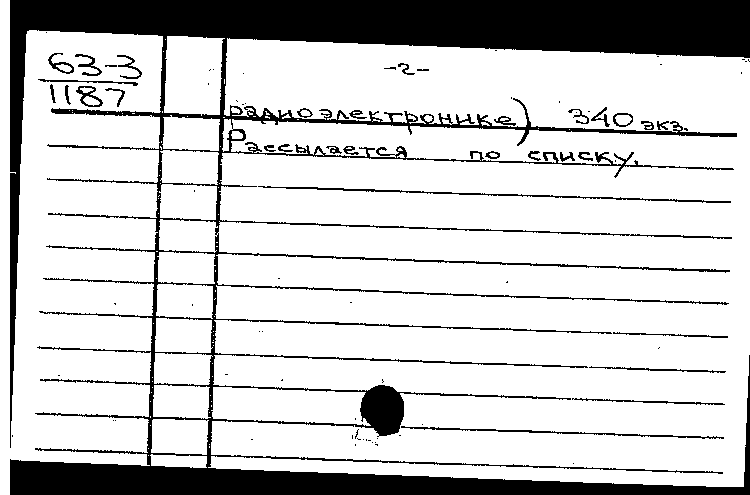 63-3
1187
-2-
радиоэлектронике) 340 экз.
Рассылается по списку.